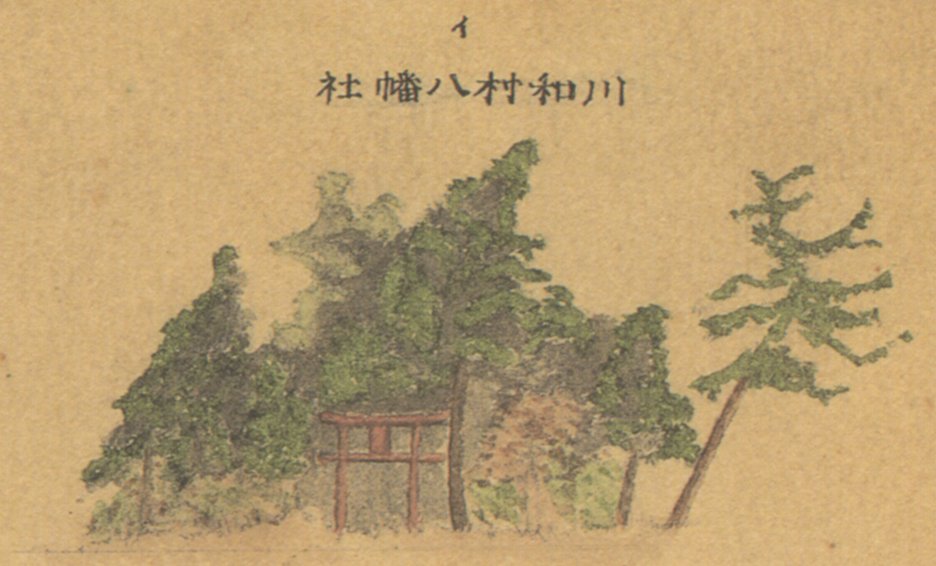 イ
川和村八幡社